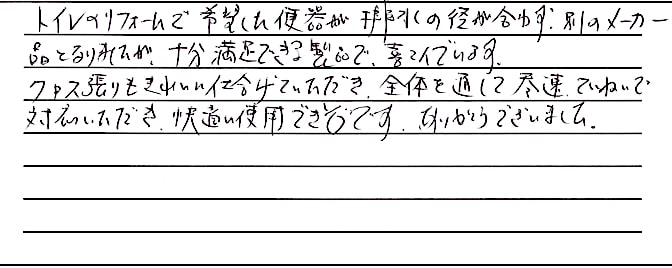 トイレのリフォームで希望した便器が排引の径が合わず、別のメーカー
品となりましたが、十分満足できる製品で、喜んでいます。
クロス張りもきれいに仕上げていただき、全体を通して迅速、ていねいで
対応いただき、快適に使用できそうです。ありがとうございました。